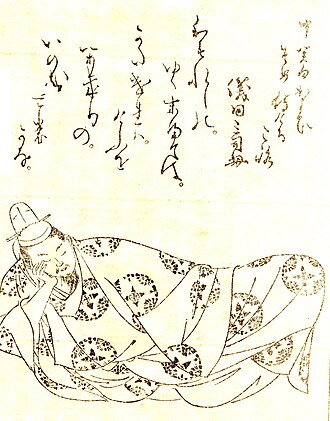 中関白かよひ
そめ侍ける
ころ
儀同三司母
わすれしの。
ゆく末まては。
かたけれは。
けふを
かきりの。
いのち
ともかな。